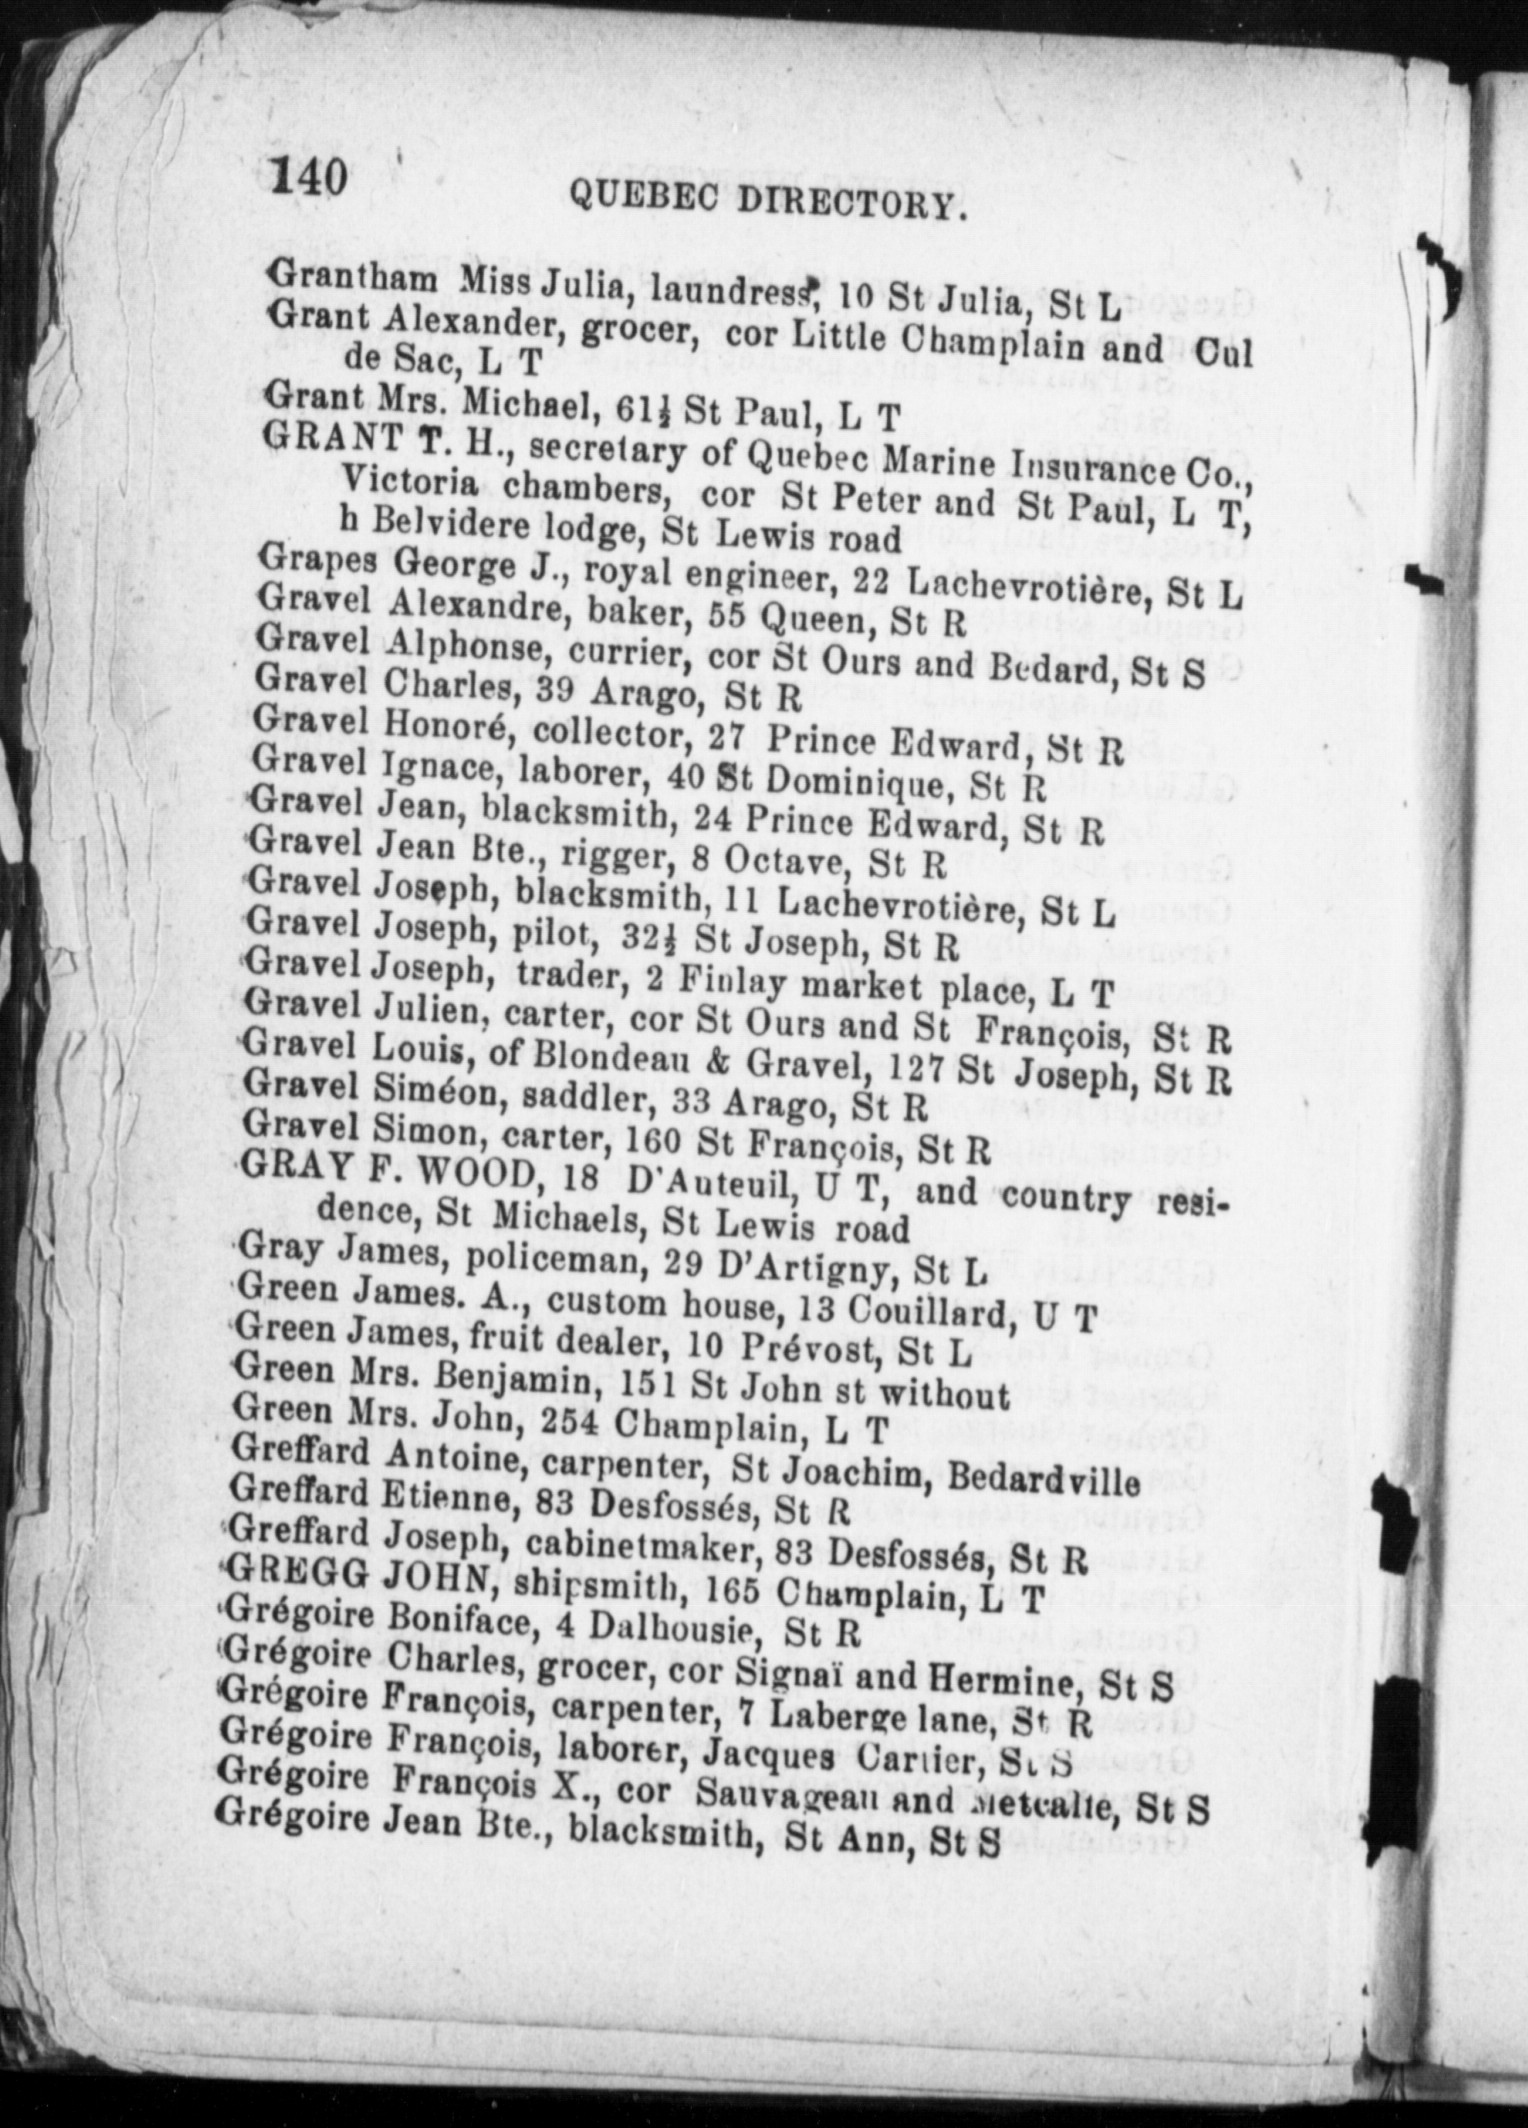 140
QUEBEC DIRECTORY.
Grantham Miss Julia, laundress, 10 St Julia, St L
Grant Alexander, grocer, cor Little Champlain and Cul
de Sac, L T
Grant Mrs. Michael, 61½ St Paul, L T
GRANT T. H., secretary of Quebec Marine Insurance Co.,
Victoria chambers, cor St Peter and St Paul, L T,
h Belvidere lodge, St Lewis road
Grapes George J., royal engineer, 22 Lachevrotière, St L
Gravel Alexandre, baker, 55 Queen, St R
Gravel Alphonse, currier, cor St Ours and Bedard, St S
Gravel Charles, 39 Arago, St R
Gravel Honoré, collector, 27 Prince Edward, St R
Gravel Ignace, laborer, 40 St Dominique, St R
Gravel Jean, blacksmith, 24 Prince Edward, St R
Gravel Jean Bte., rigger, 8 Octave, St R
Gravel Joseph, blacksmith, 11 Lachevrotière, St L
Gravel Joseph, pilot, 32½ St Joseph, St R
Gravel Joseph, trader, 2 Finlay market place, L T
Gravel Julien, carter, cor St Ours and St François, St R
Gravel Louis, of Blondeau & Gravel, 127 St Joseph, St R
Gravel Siméon, saddler, 33 Arago, St R
Gravel Simon, carter, 160 St François, St R
GRAY F. WOOD, 18 D'Auteuil, U T, and country resi-
dence, St Michaels, St Lewis road
Gray James, policeman, 29 D'Artigny, St L
Green James. A., custom house, 13 Couillard, U T
Green James, fruit dealer, 10 Prévost, St L
Green Mrs. Benjamin, 151 St John st without
Green Mrs. John, 254 Champlain, L T
Greffard Antoine, carpenter, St Joachim, Bedardville
Greffard Etienne, 83 Desfossés, St R
Greffard Joseph, cabinetmaker, 83 Desfossés, St R
GREGG JOHN, shipsmith, 165 Champlain, L T
Grégoire Boniface, 4 Dalhousie, St R
Grégoire Charles, grocer, cor Signaï and Hermine, St S
Grégoire François, carpenter, 7 Laberge lane, St R
Grégoire François, laborer, Jacques Cartier, St S
Grégoire François X., cor Sauvageau and Metcalfe, St S
Grégoire Jean Bte., blacksmith, St Ann, St S